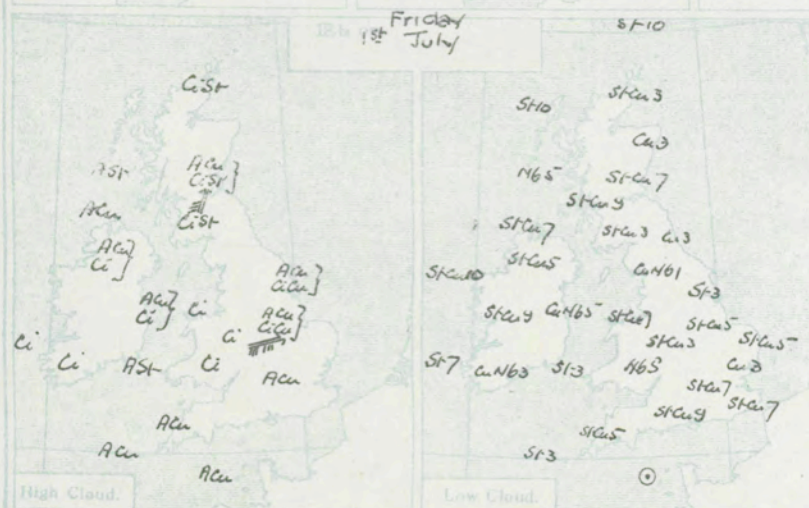 Friday
1st July
CiSt
ASt
ACu
CiSt
ACu
CiSt
ACu
Ci
ACu
CiCu
ACu
Ci
Ci
ACu
CiCu
Ci
Ci
Ci
ASt
Ci
ACu
ACu
ACu
ACu
High Cloud.
St10
St10
StCu3
Cu3
Nb5
StCu7
StCu9
StCu7
StCu3
Cu3
StCu10
StCu5
CuNb1
St3
StCu9
CuNb5
StCu7
StCu5
StCu3
StCu5
St7
CuNb3
St3
Nb5
Cu3
StCu7
StCu9
StCu7
StCu5
St3
Low Cloud.